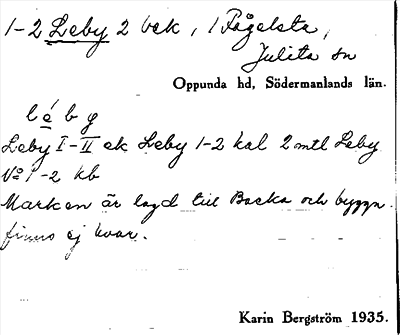 1-2 Leby 2 bek, i Fågelsta,
Julita sn
Oppunda hd, Södermanlands län.
l é b y
Leby I-II ek Leby 1-2 kal 2 mtl Leby
No 1-2 kb
Marken är lagd till Backa och byggn.
finns ej kvar.
Karin Bergström 1935.